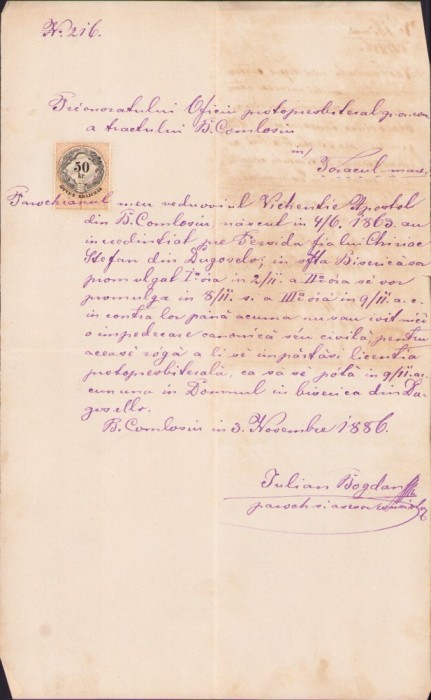 Nr. 216.
Preonoratului Oficiu protopresbiteral gr. or. rom.
a tractului B. Comlosiu
in/
Toracul mare.
50
kr
Parochianul meu veduvoiul Vichentie Apostol
din B. Comlosiu născut in 4/6. 1863. au
incredintiat pre Persida fia lui Chiriac
Stefan din Dugoselo; in sfta Biserică sa
promulgat Iª óia in 2/11 a IIª óia se vor
promulga in 8/11. si a IIIª óia in 9/11. a. c.
in contra lor până acuma nu sau ivit nici
o impedecare canonică séu civilă, pentru
aceasé rógă a li se impărtăsi licentia
protopresbiterală, ca să sé pótă in 9/11. a.c.
cununa in Domnul in biserica din Du-
gosello.
B. Comlosiu in 3. Novembre 1886.
Iulian Bogdan
paroch si